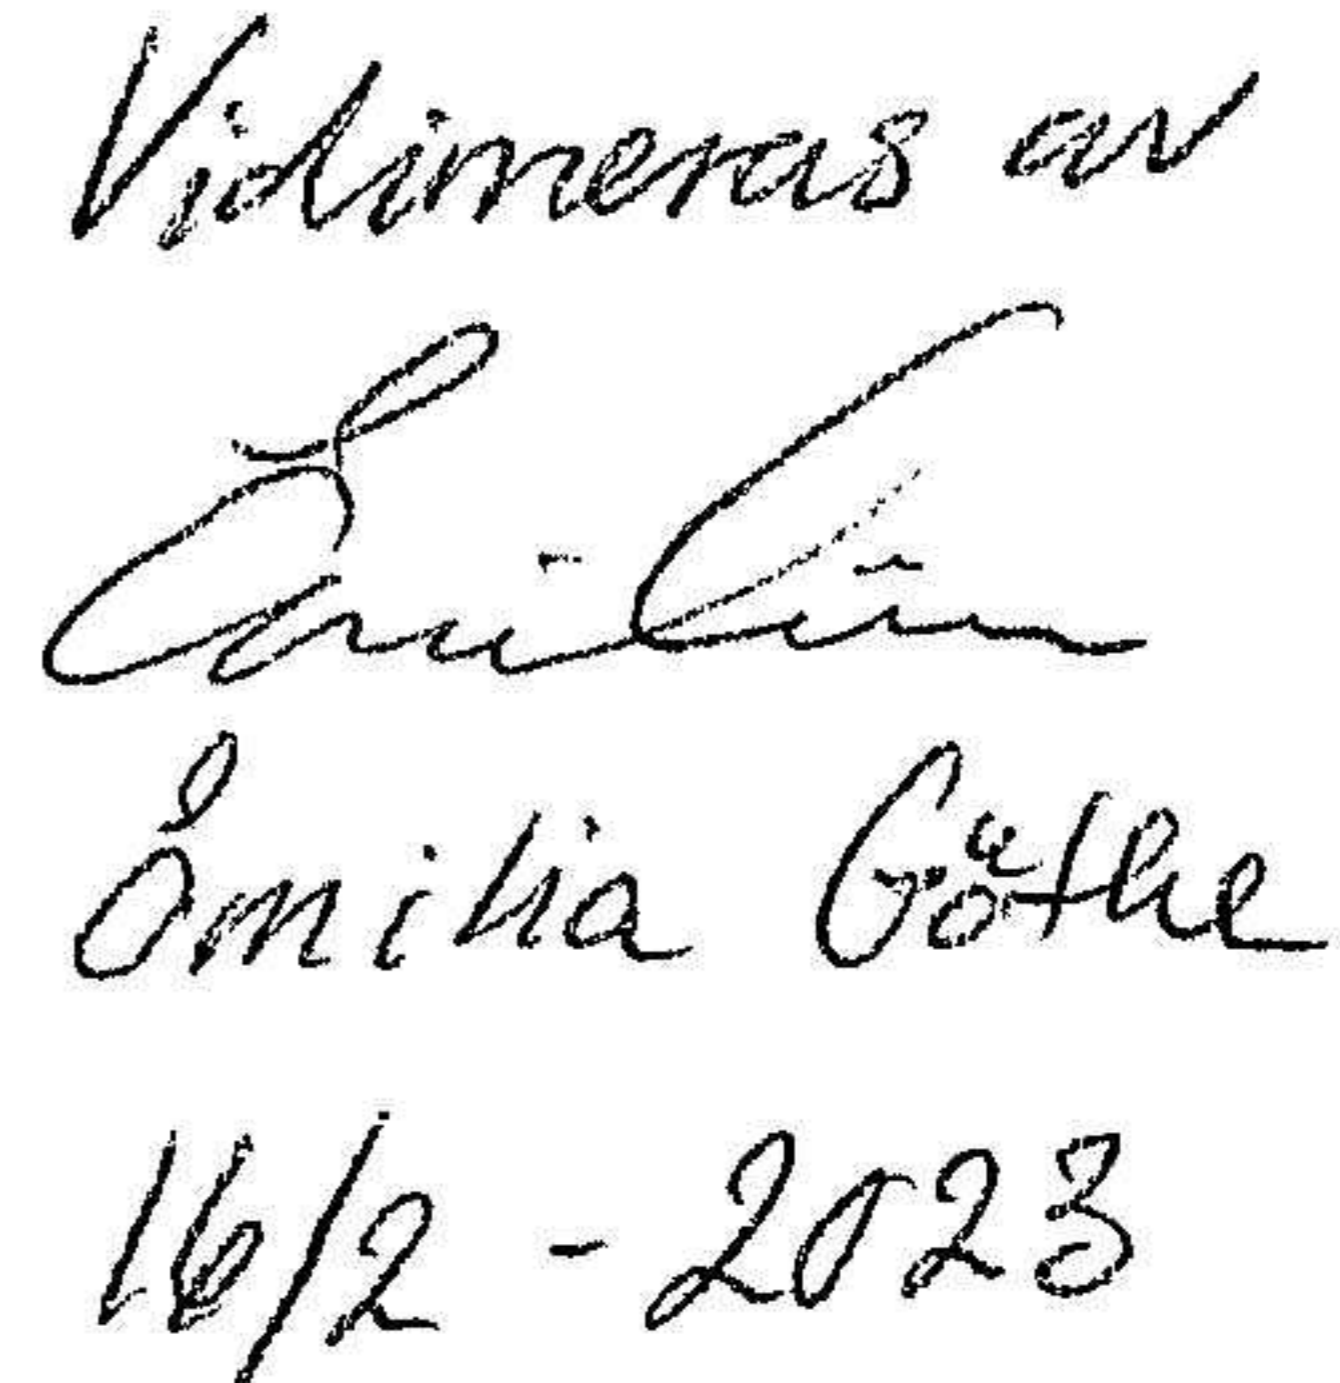 Vidimeras av
Emilia Göthe
16/2 - 2023